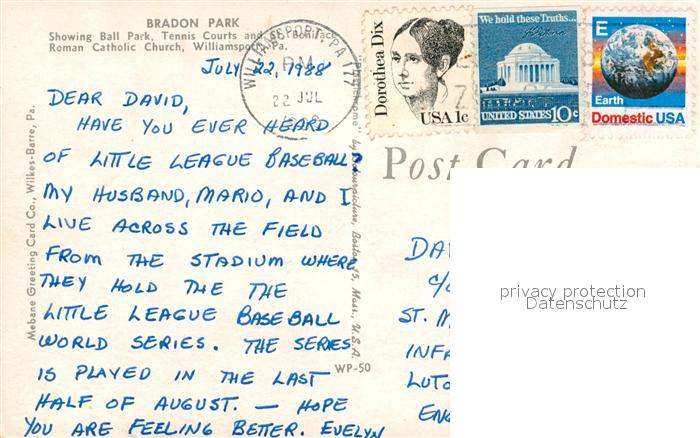 BRADON PARK
Showing Ball Park, Tennis Courts and St. Boniface
Roman Catholic Church, Williamsport, Pa.
WILLIAMSPORT, PA 177
PM
22 JUL
1988
Dorothea Dix
USA 1c
We hold these Truths...
UNITED STATES 10c
E
Earth
Domestic USA
Post Card
JULY 22, 1988
DEAR DAVID,
HAVE YOU EVER HEARD
OF LITTLE LEAGUE BASEBALL?
MY HUSBAND, MARIO, AND I
LIVE ACROSS THE FIELD
FROM THE STADIUM WHERE
THEY HOLD THE THE
LITTLE LEAGUE BASEBALL
WORLD SERIES. THE SERIES
IS PLAYED IN THE LAST
HALF OF AUGUST. — HOPE
YOU ARE FEELING BETTER. EVELYN
Mebane Greeting Card Co., Wilkes-Barre, Pa.
Boston 15, Mass., U.S.A.
WP-50
DAV
c/o
ST. M
INFA
LUTO
ENG
privacy protection
Datenschutz